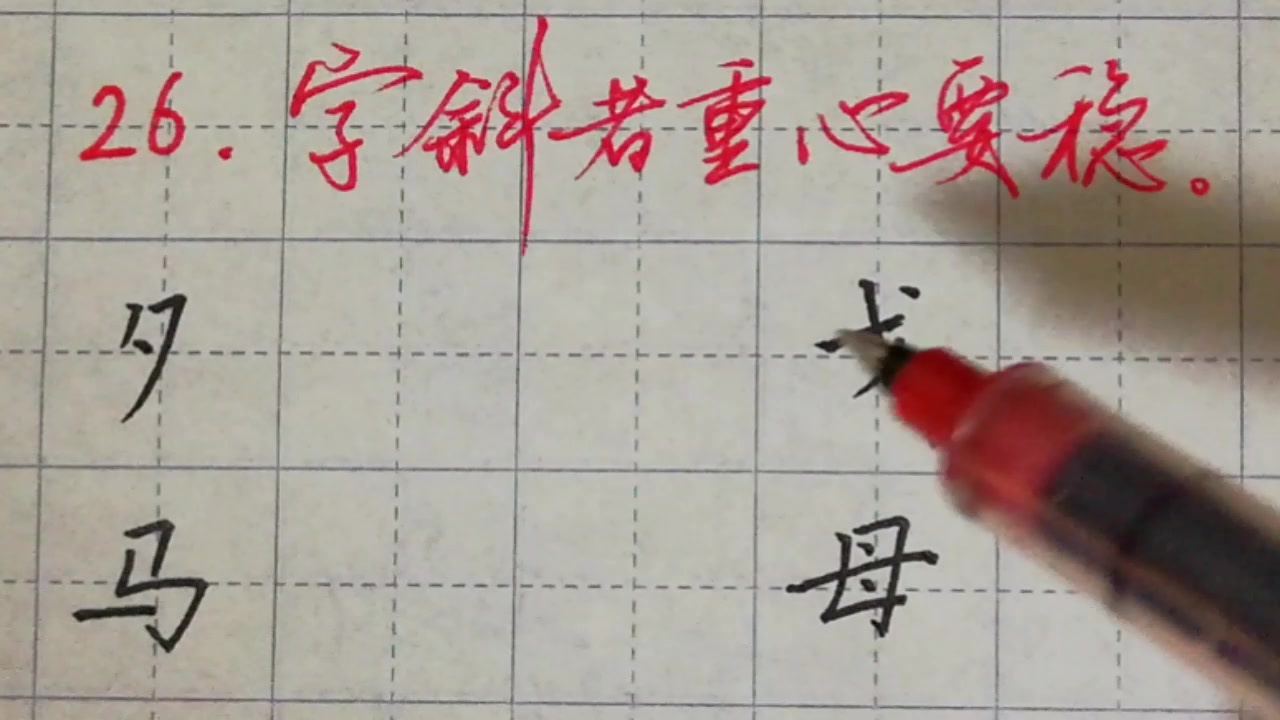 26.字斜者重心要稳。
夕
马 母